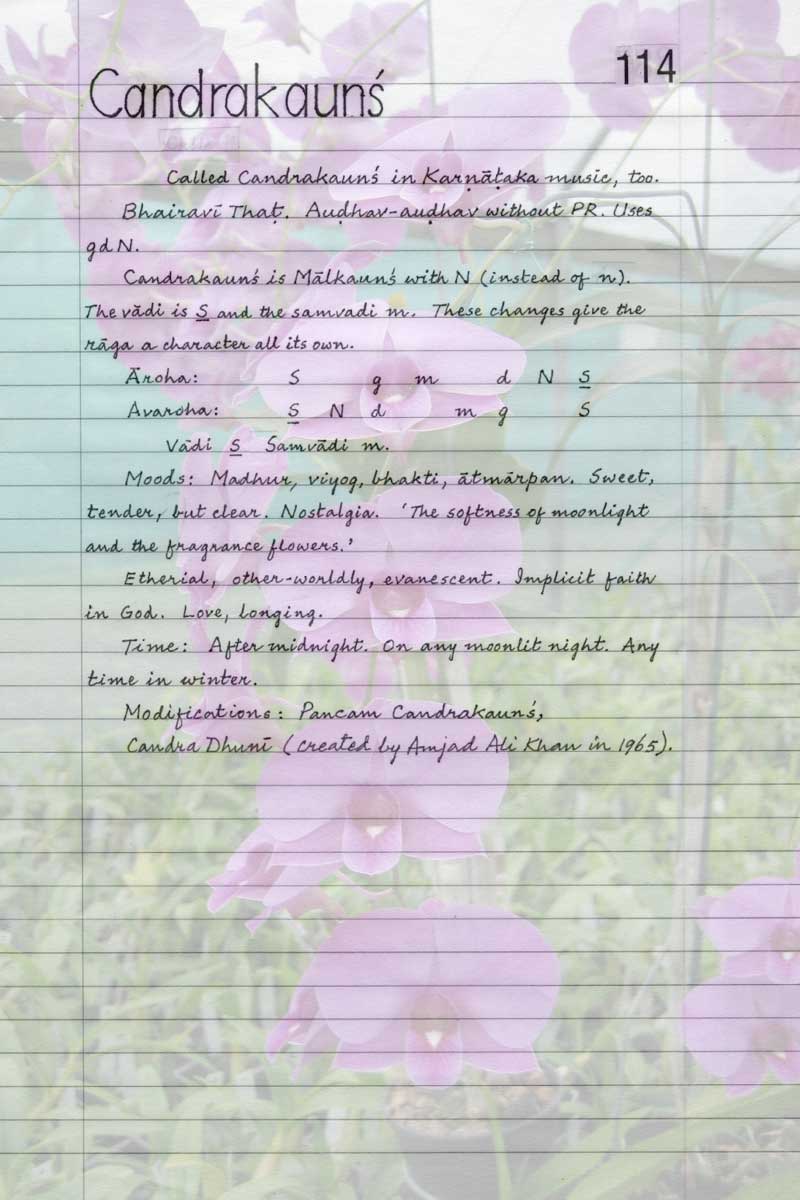 114
Candrakaunś
Called Candrakaunś in Karṇāṭaka music, too.
Bhairavī Thaṭ. Auḍhav-auḍhav without PR. Uses
g d N.
Candrakaunś is Mālkaunś with N (instead of n).
The vādi is S̲ and the samvadi m. These changes give the
rāga a character all its own.
Āroha: S g m d N S̲
Avaroha: S̲ N d m g S
Vādi S̲ Samvādi m.
Moods: Madhur, viyog, bhakti, ātmārpan. Sweet,
tender, but clear. Nostalgia. 'The softness of moonlight
and the fragrance flowers.'
Etherial, other-worldly, evanescent. Implicit faith
in God. Love, longing.
Time: After midnight. On any moonlit night. Any
time in winter.
Modifications: Pancam Candrakaunś,
Candra Dhunī (created by Amjad Ali Khan in 1965).